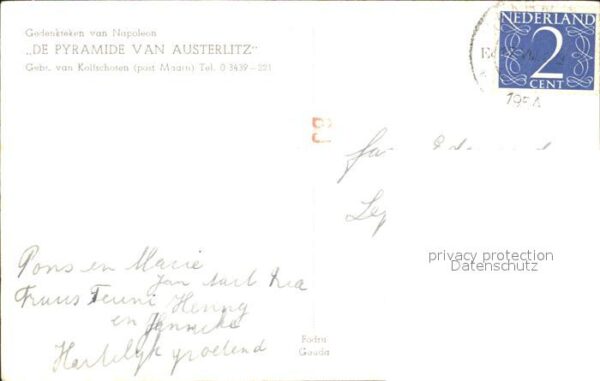 Gedenkteken van Napoleon
„DE PYRAMIDE VAN AUSTERLITZ"
Gebr. van Kolfschoten (post Maarn) Tel. 0 3439-221
NEDERLAND
2
CENT
1954
fam
privacy protection
Datenschutz
Pons en Marie
Jan
Truus Teuni Henny
en Janneke
Hartelijk groetend
Fodra
Gouda